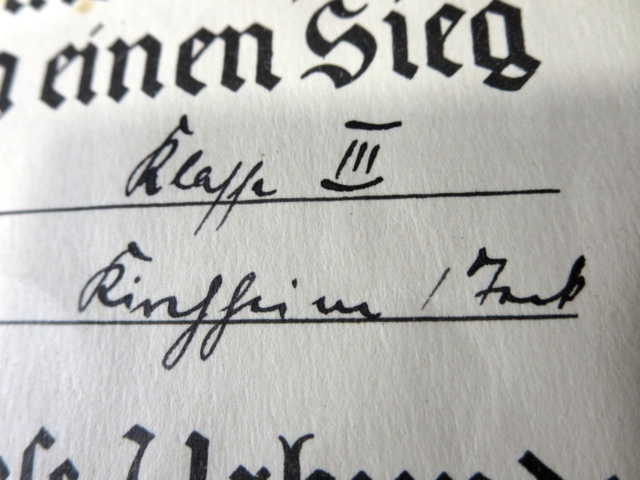 einen Sieg
Klasse III
Kirchheim / Teck
Urkunde